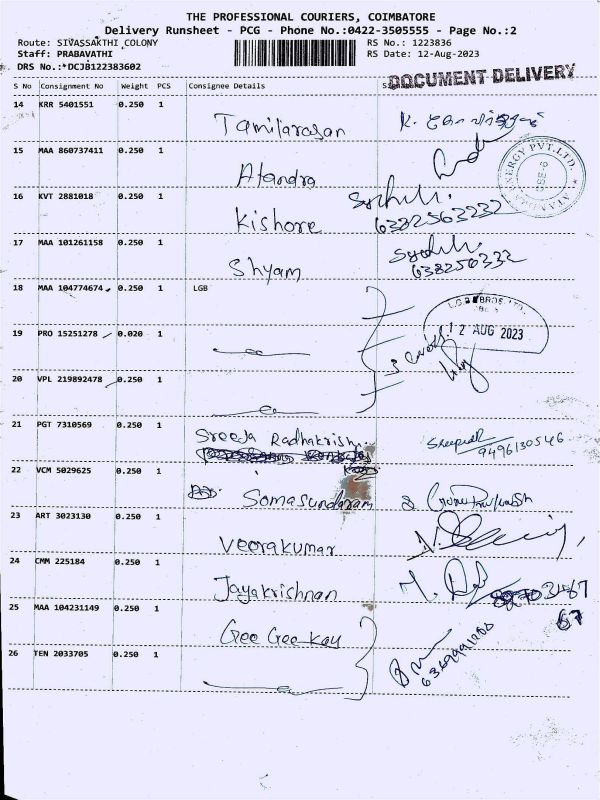 THE PROFESSIONAL COURIERS, COIMBATORE
Delivery Runsheet - PCG - Phone No.:0422-3505555 - Page No.:2
Route: SIVASSAKTHI COLONY RS No.: 1223836
Staff: PRABAVATHI RS Date: 12-Aug-2023
DRS No.:*DCJB122383602
DOCUMENT DELIVERY
S No Consignment No Weight PCS Consignee Details
14 KRR 5401551 0.250 1 Tamilarasan
15 MAA 860737411 0.250 1 Atandra
16 KVT 2881018 0.250 1 Kishore 6382563232
17 MAA 101261158 0.250 1 Shyam 638256332
18 MAA 104774674 0.250 1 LGB
12 AUG 2023
19 PRO 15251278 0.020 1
20 VPL 219892478 0.250 1
21 PGT 7310569 0.250 1 Sreeja Radhakrish 9496130546
22 VCM 5029625 0.250 1 Somasundaram
23 ART 3023130 0.250 1 Veerakumar
24 CMM 225184 0.250 1 Jayakrishnan
25 MAA 104231149 0.250 1 Gee Gee Kay
26 TEN 2033705 0.250 1